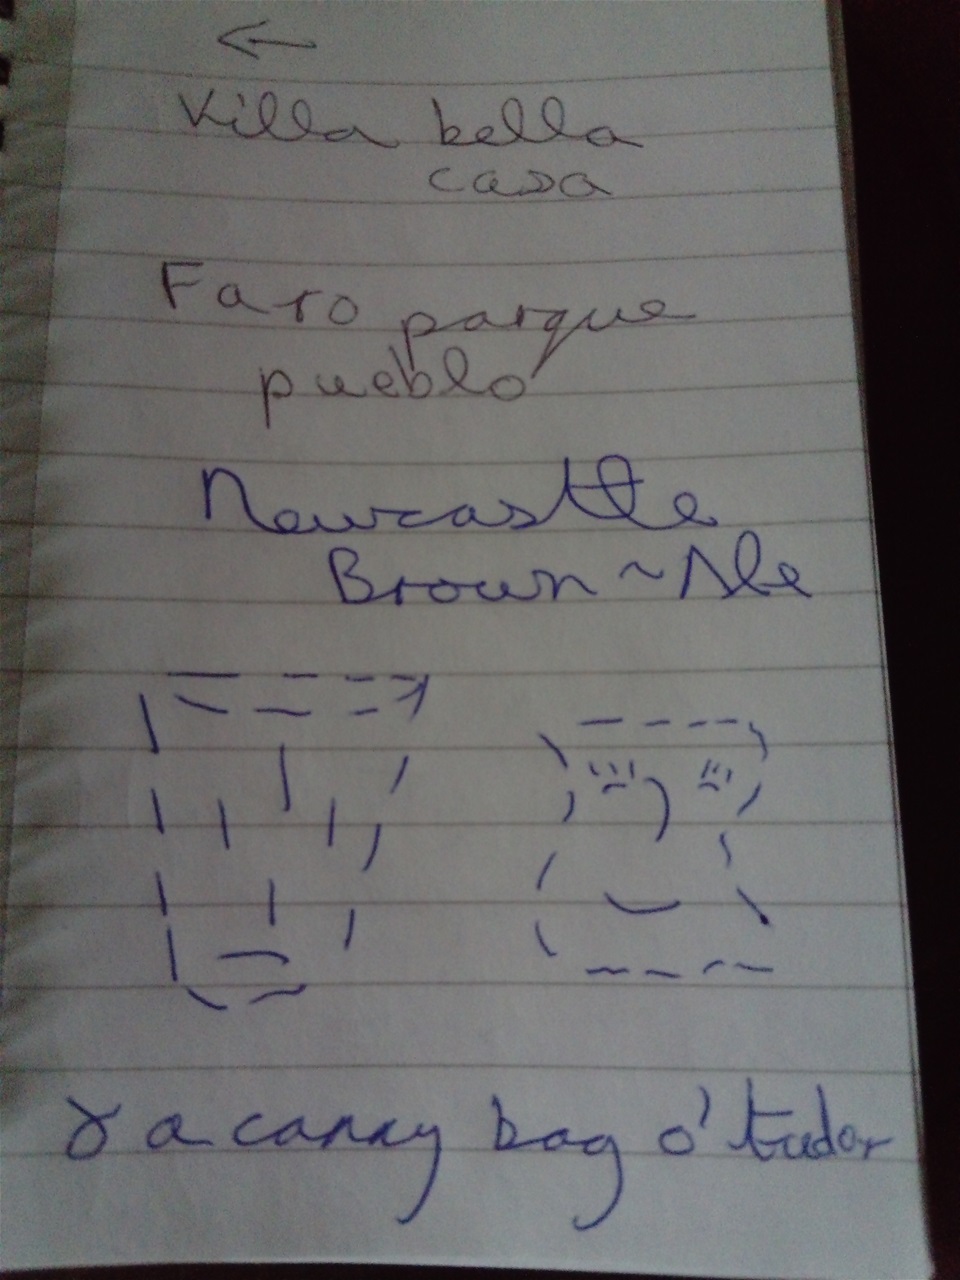 Villa bella
casa
Faro parque
pueblo
Newcastle
Brown ~ Ale
& a canny bag o' tudor